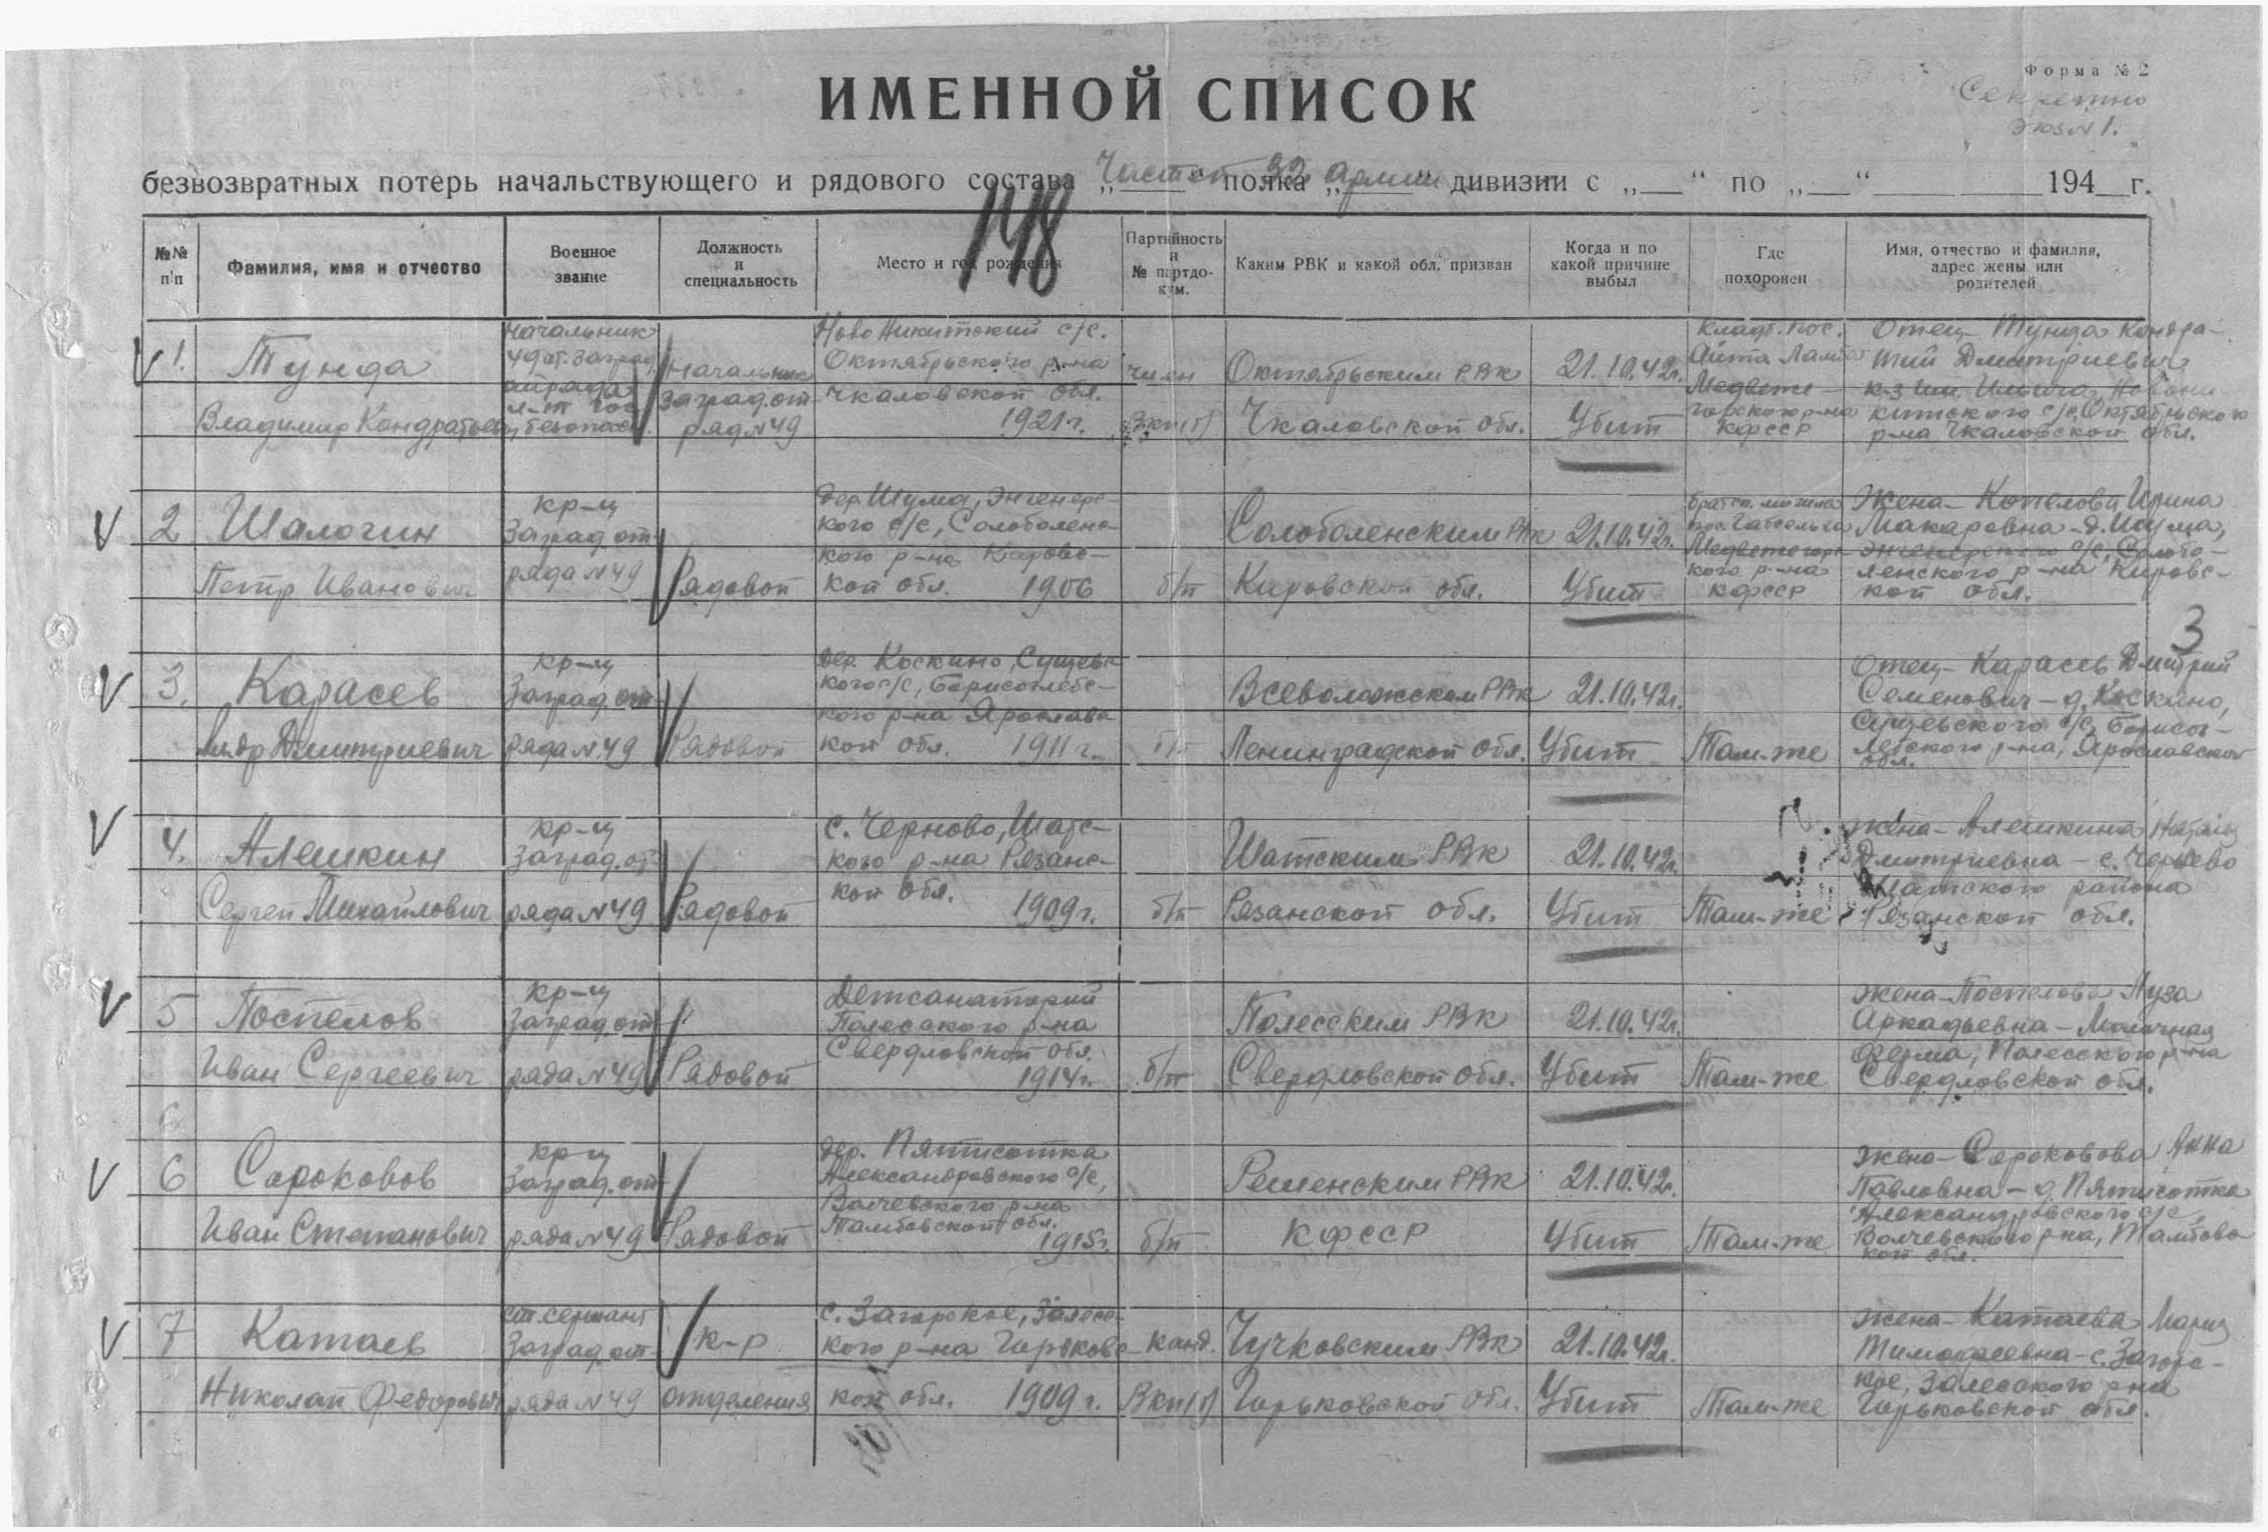 Форма № 2
Секретно
экз № 1.
ИМЕННОЙ СПИСОК
безвозвратных потерь начальствующего и рядового состава „ Частей “ полка „ 32 армии “ дивизии с „ “ по „ “ 194 г.
148
№№ п/п
Фамилия, имя и отчество
Военное звание
Должность и специальность
Место и год рождения
Партийность и № партдокум.
Каким РВК и какой обл. призван
Когда и по какой причине выбыл
Где похоронен
Имя, отчество и фамилия, адрес жены или родителей
1.
Тунда
Владимир Кондратьев
Начальник
49 от. заград
отряда
л-т гос
безопасн.
Начальник
Заград.от
ряд N 49
Ново Никитский с/с.
Октябрьского р-на
Чкаловской обл.
1921 г.
член
ВКП(б)
Октябрьским РВК
Чкаловской обл.
21.10.42г.
Убит
Кладб. пос.
Медвеже-
горского р-на
КФССР
Отец - Тунда Кондра-
тий Дмитриевич
к-з им. Ильича, Новони-
китского с/с Октябрьского
р-на Чкаловской обл.
2
Шалогин
Петр Иванович
кр-ц
Заград.от-
ряда N 49
Рядовой
дер. Шума,
кого с/с,
кого р-на Кировс-
кой обл. 1906
б/п
РВК
Кировской обл.
21.10.42г.
Убит
братск. могила
Медвежегорс-
кого р-на
КФССР
Жена - Копелова Ирина
Макаровна - д. Шума,
ленского р-на Кировс-
кой обл.
3
3.
Карасев
Дмитриевич
кр-ц
Заград.от-
ряда N 49
Рядовой
дер. Коскино, Сущевс-
кого с/с, Борисоглебс-
кого р-на Ярославс
кой обл. 1911 г.
б/п
Всеволожским РВК
Ленинградской обл.
21.10.42г.
Убит
Там-же
Отец - Карасев Дмитрий
Семенович - д. Коскино,
Сущевского с/с, Борисог-
лебского р-на, Ярославской
обл.
4.
Алешкин
Сергей Михайлович
кр-ц
Заград.от-
ряда N 49
Рядовой
с. Черново, Шатс-
кого р-на Рязанс-
кой обл.
1909г.
б/п
Шатским РВК
Рязанской обл.
21.10.42г.
Убит
Там-же
Жена - Алешкина
Дмитриевна - с.
Шатского района
Рязанской обл.
5
Поспелов
Иван Сергеевич
кр-ц
Заград.от-
ряда N 49
Рядовой
Детсанаторий
р-на
Свердловской обл.
1914г.
б/п
РВК
Свердловской обл.
21.10.42г.
Убит
Там-же
Жена - Поспелова Муза
Аркадьевна - Молочная
ферма, р-на
Свердловской обл.
6
Сороковов
Иван Степанович
кр-ц
Заград.от-
ряда N 49
Рядовой
дер. Пятисотка
Александровского с/с,
Волчевского р-на
Тамбовской обл.
1915г.
б/п
РВК
КФССР
21.10.42г.
Убит
Там-же
Жена - Сороковова Анна
Павловна - д. Пятисотка
Александровского с/с
Волчевского р-на, Тамбовс
кой обл.
7
Катаев
Николай Федорович
ст. сержант
Заград.от-
ряда N 49
к-р
отделения
с. Загорское, Залесс-
кого р-на Горьковс
кой обл. 1909 г.
канд.
ВКП(б)
Чучковским РВК
Горьковской обл.
21.10.42г.
Убит
Там-же
Жена - Катаева Мария
Тимофеевна - с. Загорс-
кое, Залесского р-на
Горьковской обл.